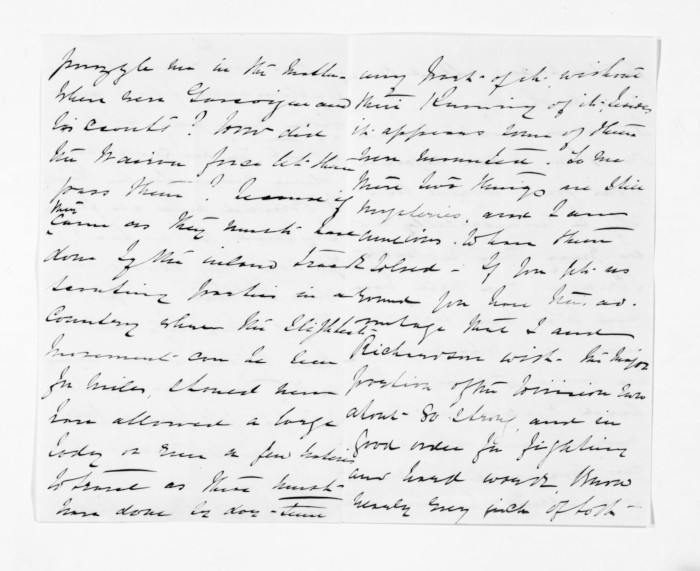 puzzle me in the matter
Where were Gascoigne and
his scouts? How did
the Wairoa force let them
pass them? because if
they
came as they must have
done by the inland track
scouting parties in a
Country where the slightest
movement can be seen
for miles, should never
have allowed a large
body or even a few natives
to travel as these must
have done by day-time
any part of it without
their knowing of it. Besides
it appears some of them
were mounted. To me
these two things are still
mysteries, and I am
anxious. When them
solved - If you get us
round you have the ad-
vantage that I and
Richardson wish. The major
portion of the Division two
about 80 strong, and in
good order for fighting
and hard work. Know
nearly every inch of both